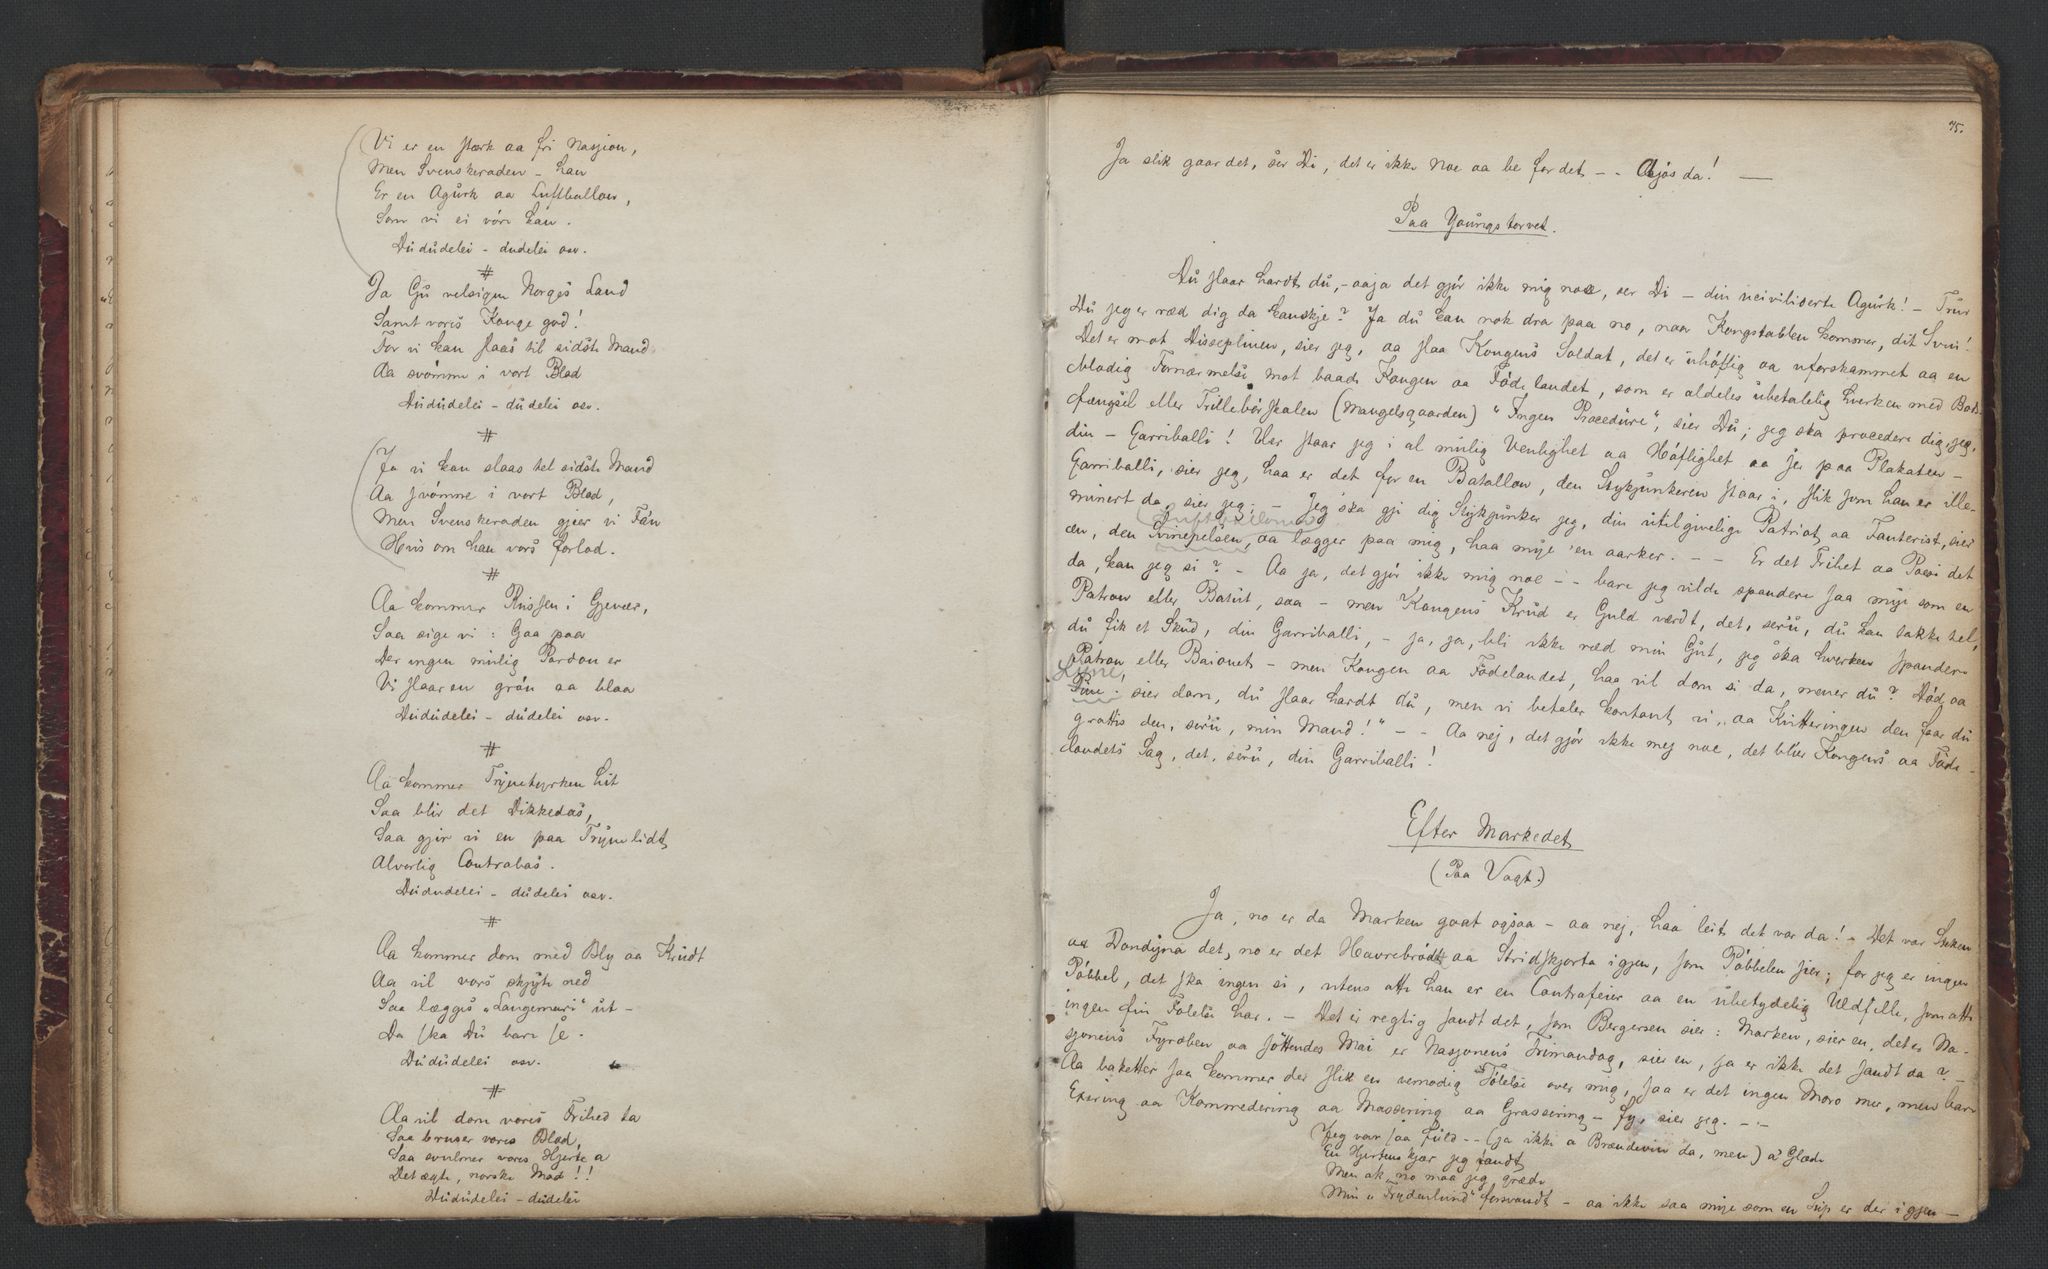 Vi er en stærk aa fri Nasjion,
Men Svenskeraden - han
Er en Agurk aa Luftballon,
Som vi ei vöre kan.
Dududelei - dudelei osv.
#
Ja Gu velsigne Norges Land
Samt vores Konge god!
For vi kan slaas til sidste Mand
Aa svömme i vort Blod
Dududelei - dudelei osv.
#
Ja vi kan slaas tel sidste Mand
Aa svömme i vort Blod,
Men Svenskeraden gjier vi Fan
Hvis om han vors forlod.
#
Aa kommer Russen i Gjevær,
Saa sige vi: Gaa paa
Der ingen mulig Pardon er
Vi slaar en grön aa blaa
Dududelei - dudelei osv.
#
Aa kommer Trynetyrken hit
Saa blir det Dikkedas,
Saa gjir vi en paa Tryne lidt
Alverlig Contrabas.
Dududelei - dudelei osv.
#
Aa kommer dom med Bly aa Krudt
Aa vil vors skyte ned
Saa lægges "Langemari" ut -
Da ska Du bare se.
Dududelei osv.
#
Aa vil dom vores Frihed ta
Saa bruger vores Blod,
Saa svulmer vores Hjerte a
Det ægte, norske Mod!!
Dududelei - dudelei
75.
Ja slik gaar det, ser Di, det er ikke noe aa be for det -- Ajös da! —
Paa Youngstorvet.
Du slaar hardt du, - aaja det gjör ikke mig noe, ser Di - din uciviliserte Agurk! - Trur
Du jeg er ræd dig da kanskje? Ja du kan nok dra paa no, naar Kongstabben kommer, dit Svin!
Det er mot Disseplinen, sier jeg, aa slaa Kongens Soldat, det er uhöflig aa uforskammet aa en
blodig Fornærmelse mot baade Kongen aa Födelandet, som er aldeles ubetalelig hverken med Bod-
fængsel eller Trillebör skalen (Mangelsgaarden) "Ingen Procedure", sier Du; jeg ska procedere dig, jeg,
din - Garriballi! Her staar jeg i al mulig Venlighet aa Höflighet aa ser paa Plakaten -
Garriballi, sier jeg, haa er det for en Batallon, den Stykjunkeren staar i, slik som han er ille-
minert da, sier jeg; - Jeg ska gji dig Stykjunker jeg, din utilgivelige Patriot aa Fanterist, sier
en, den Svinepelsen, aa lægger paa mig, haa mye 'en aarker. - - Er det Frihet aa Poesi det
da, kan jeg si? - Aa ja, det gjör ikke mig noe - - bare jeg vilde spandere saa mye som en
Patron eller Batut, saa - men Kongens Krud er Guld værdt, det, seru, du kan takke tel,
du fik et Skud, din Garriballi, - ja, ja, bli ikke ræd min Gut, jeg ska hverken spandere
Patron eller Baionet - men Kongen aa Födelandet, haa vil dom si da, mener du? Död aa
Lyne,
Pine: sier dom, du slaar hardt du, men vi betaler kontant vi, aa Kvitteringen den faar du
grattis den, seru, min Mand!" - - Aa nej, det gjör ikke mej noe, det blier Kongens aa Föde-
landets Sag, det, seru, din Garriballi!
Efter Markedet
(Paa Vagt.)
Ja, no er da Marken goat ogsaa - aa nej, haa leit det var da! - Det var Steken
aa Dondyna det, no er det Havrebrödt aa Stridskjorta igjen, som Pöbbelen sier; for jeg er ingen
Pöbbel, det ska ingen si, utens atte han er en Contrafeier aa en ubetydelig Uldfille, som atte
ingen fin Fölelse har. - Det er regtig sandt det, som Bergersen sier: Marken, sier en, det er Na-
sjonens Fyraben aa söttendes Mai er Nasjonens Frimandag, sier en, ja er ikke det sandt da? -
Aa baketter saa kommer der slik en vemodig Fölelse over mig, saa er det ingen Moro mer, men bare
Exiring aa Kommedering aa Massering aa Grassering - fy, sier jeg. - -
Jeg var saa fuld - - (ja ikke a Brændevin da, men) a' Glæde
En Hjertenskjær jeg fandt
Men ak, no maa jeg græde
Min "Frydenlund" forsvandt - aa ikke saa mye som en Sup er der igjen -